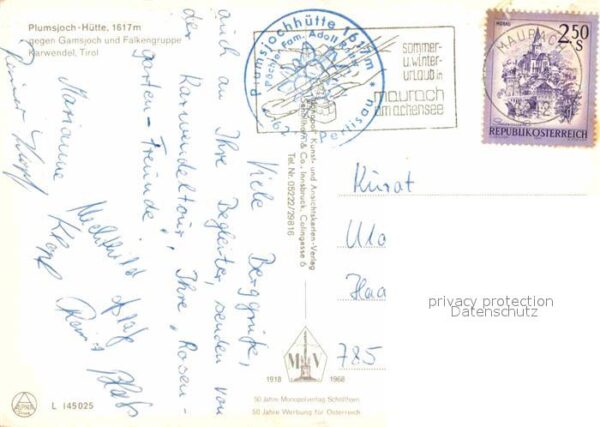 Plumsjoch-Hütte, 1617m
gegen Gamsjoch und Falkengruppe
Karwendel, Tirol
Plumsjochhütte 1617m
Pächter Fam. Adolf
Pertisau
sommer-
u.winter-
urlaub in
maurach
am achensee
MAURACH
MURAU
2.50
S
REPUBLIK ÖSTERREICH
Viele Berggrüße,
auch an Ihre Begleiter, senden von
der Karwendeltour, Ihre „Rosen-
garten-Freunde"
Marianne Klopf
Reiner Klopf
Mechthild
Kunst- und Ansichtskarten-Verlag
& Co., Innsbruck, Colingasse 6
Tel. Nr. 05222/29816
Kurat
Ulo
Haa
785
privacy protection
Datenschutz
M V
1918 1968
50 Jahre Monopolverlag Schöllhorn
50 Jahre Werbung für Österreich
L 145025